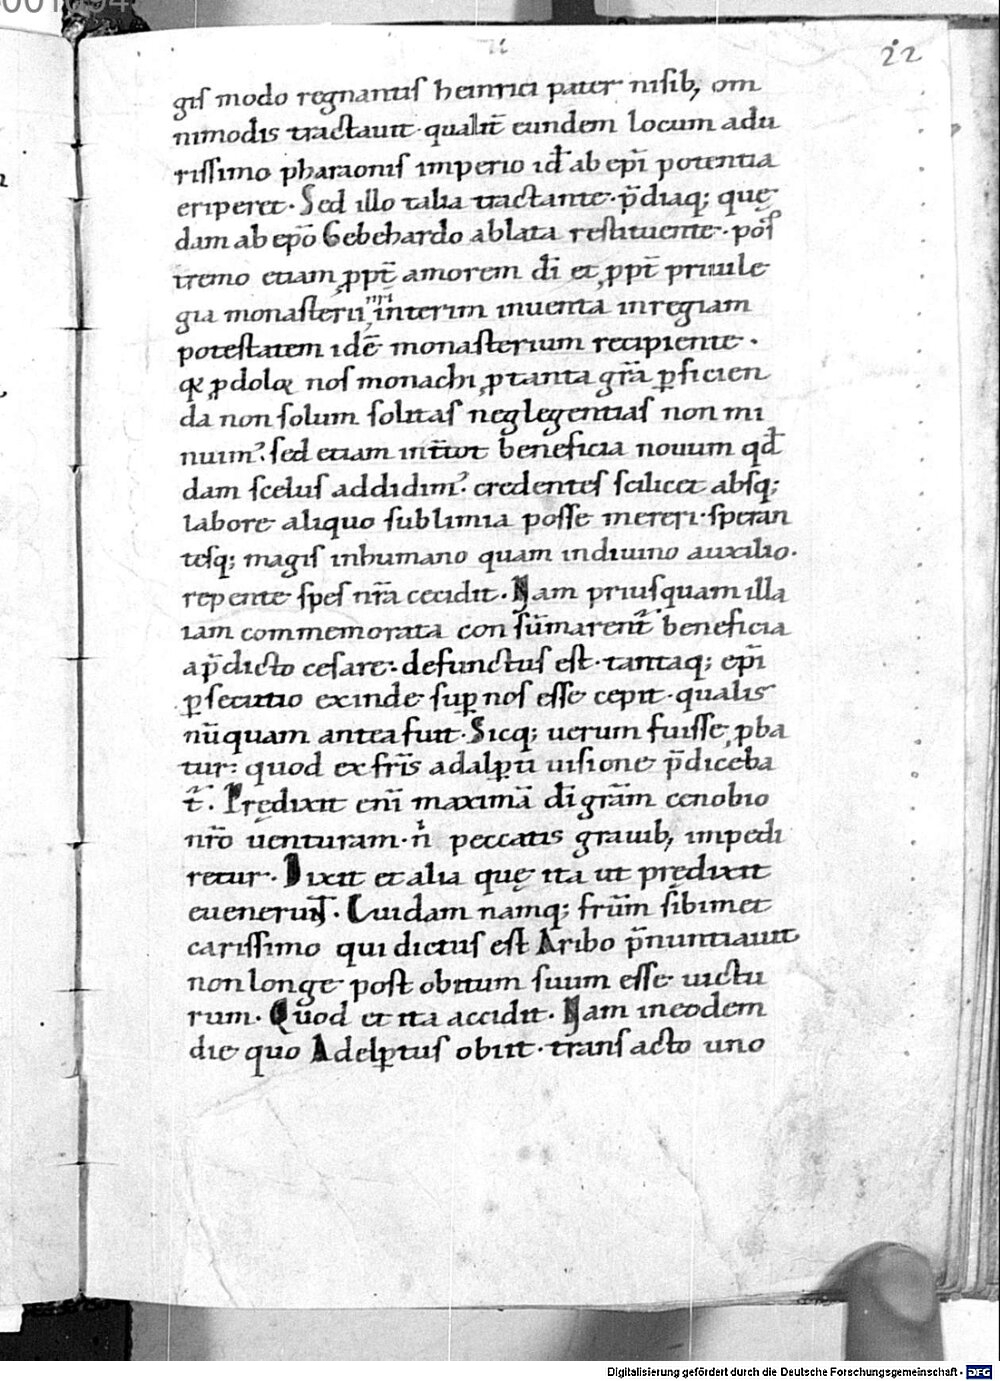 22
gis modo regnantis heinrici pater nisib; om
nimodis tractauit · qualit̄ eundem locum a du
rissimo pharaonis imperio id̄ ab ep̄i potentia
eriperet · Sed illo talia tractante · p̄diaq; quę
dam ab ep̄o Gebehardo ablata restituente · pos
tremo etiam ꝓpt̄ amorem dī et ꝓpt̄ priuile
gia monasterii nr̄i interim inuenta in regiam
potestatem idē monasterium recipiente ·
ꝓdolor nos monachi ꝓ tanta gr̄a ꝑficien
da non solum solitas neglegentias non mi
nuim᾽ · sed etiam int̄ tot beneficia nouum qd̄
dam scelus addidim᾽ · credentes scilicet absq;
labore aliquo sublimia posse mereri · speran
tesq; magis in humano quam in diuino auxilio ·
repente spes nr̄a cecidit · Nam priusquam illa
iam commemorata consūmarent̄ beneficia
a p̄dicto cesare · defunctus est · tantaq; ep̄i
ꝑsecutio exinde suꝑ nos esse cepit · qualis
nūquam antea fuit · Sicq; uerum fuisse ꝓba
tur · quod ex fr̄is adalꝑti uisione p̄diceba
t̄ · Prędixit eni᷒ maximā dī gr̄am cenobio
nr̄o uenturam · n̄ peccatis grauib; impedi
retur · Dixit et alia quę ita ut prędixit
euenerunt · Cuidam namq; fr̄um sibimet
carissimo qui dictus est Aribo p̄nuntiauit
non longe post obitum suum esse uictu
rum · Quod et ita accidit · Nam in eodem
die quo Adelꝑtus obiit · transacto uno
Digitalisierung gefördert durch die Deutsche Forschungsgemeinschaft - DFG